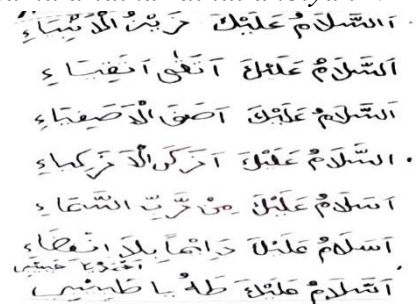 اَلسَّلَامُ عَلَيْكَ زَيْنُ الْاَنْبِيَاءِ
اَلسَّلَامُ عَلَيْكَ اَتْقَى اَتْقِيَاءِ
اَلسَّلَامُ عَلَيْكَ اَصْفَى الْاَصْفِيَاءِ
اَلسَّلَامُ عَلَيْكَ اَزْكَى الْاَزْكِيَاءِ
اَسَلَامُ عَلَيْكَ مِنْ رَّبِّ السَّمَاءِ
اَسَلَامُ عَلَيْكَ دَائِمًا بِلَا انْقِضَاءِ
اَحْمَدْ يَا حَبِيْبِي
اَسَّلَامُ عَلَيْكَ طٰهٰ يَا طَبِيْبِي